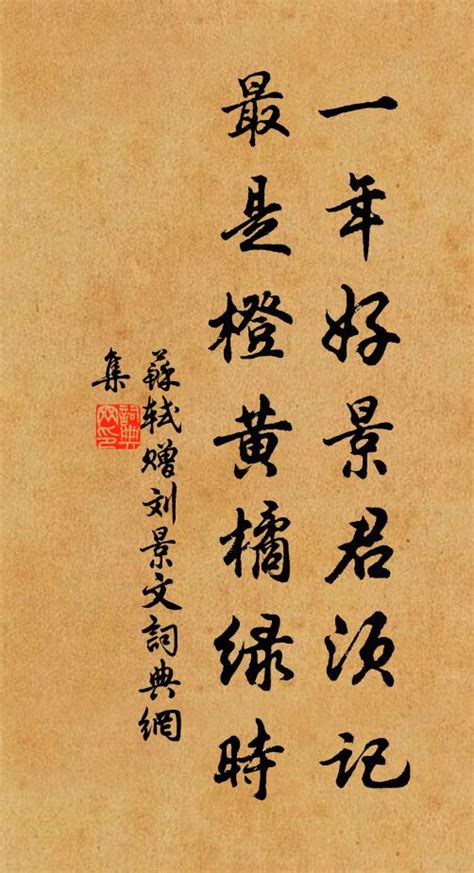 一年好景君须记
最是橙黄橘绿時
蘇軾赠刘景文詞典網
集
詞典
网印